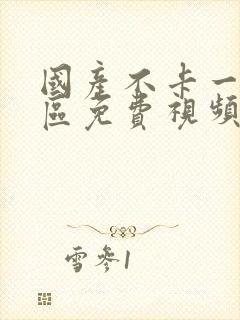 國產不卡一
區免費視頻
雪參1